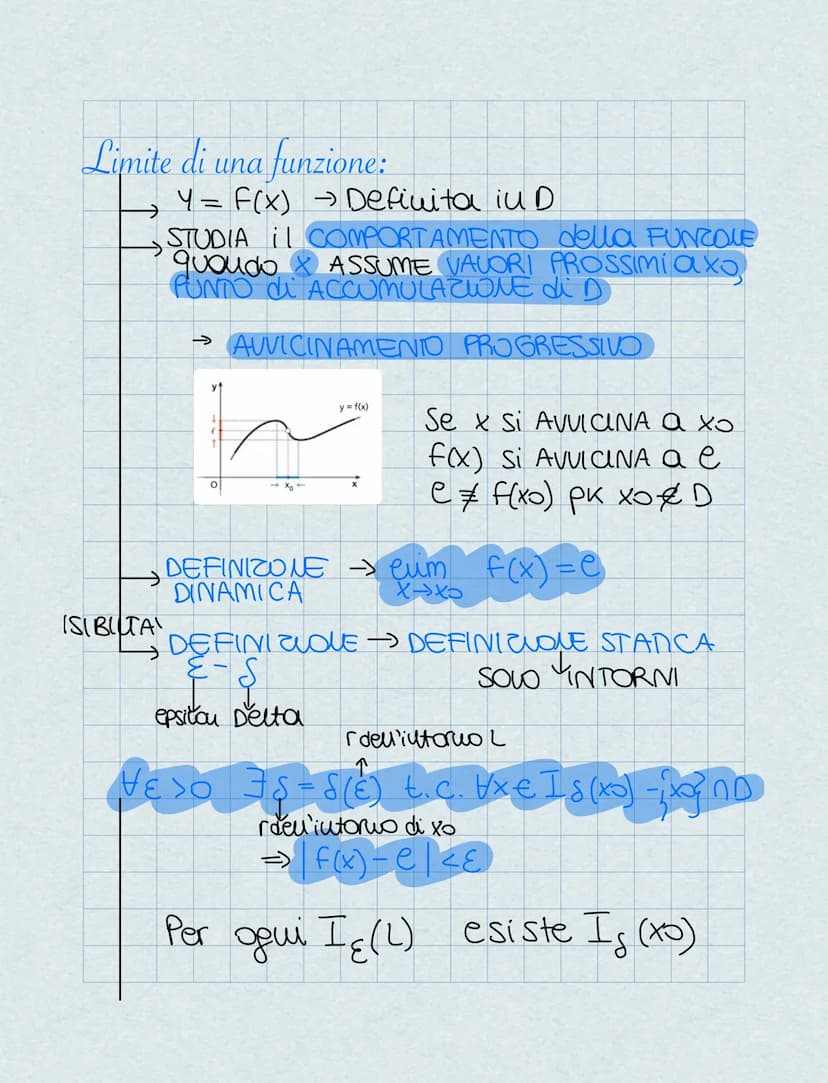 Limite di una funzione:
→ y = f(x) → Definita in D
→ STUDIA il COMPORTAMENTO della FUNZIONE
quando x ASSUME VALORI PROSSIMI a x0,
PUNTO di ACCUMULAZIONE di D
→ AVVICINAMENTO PROGRESSIVO
y
y = f(x)
ℓ
O
x₀
x
Se x si AVVICINA a x0
f(x) si AVVICINA a ℓ
ℓ ≠ f(x0) pk x0 ∉ D
→ DEFINIZIONE → lim f(x) = ℓ
DINAMICA x→x0
ISIBILITA'
→ DEFINIZIONE → DEFINIZIONE STATICA
ε - δ
SOLO INTORNI
epsilon Delta
r dell'intorno L
∀ε > 0 ∃δ = δ(ε) t.c. ∀x ∈ Iδ(x0) - {x0} ∩ D
r dell'intorno di x0
⇒ |f(x) - ℓ| < ε
Per ogni Iε(L) esiste Iδ(x0)